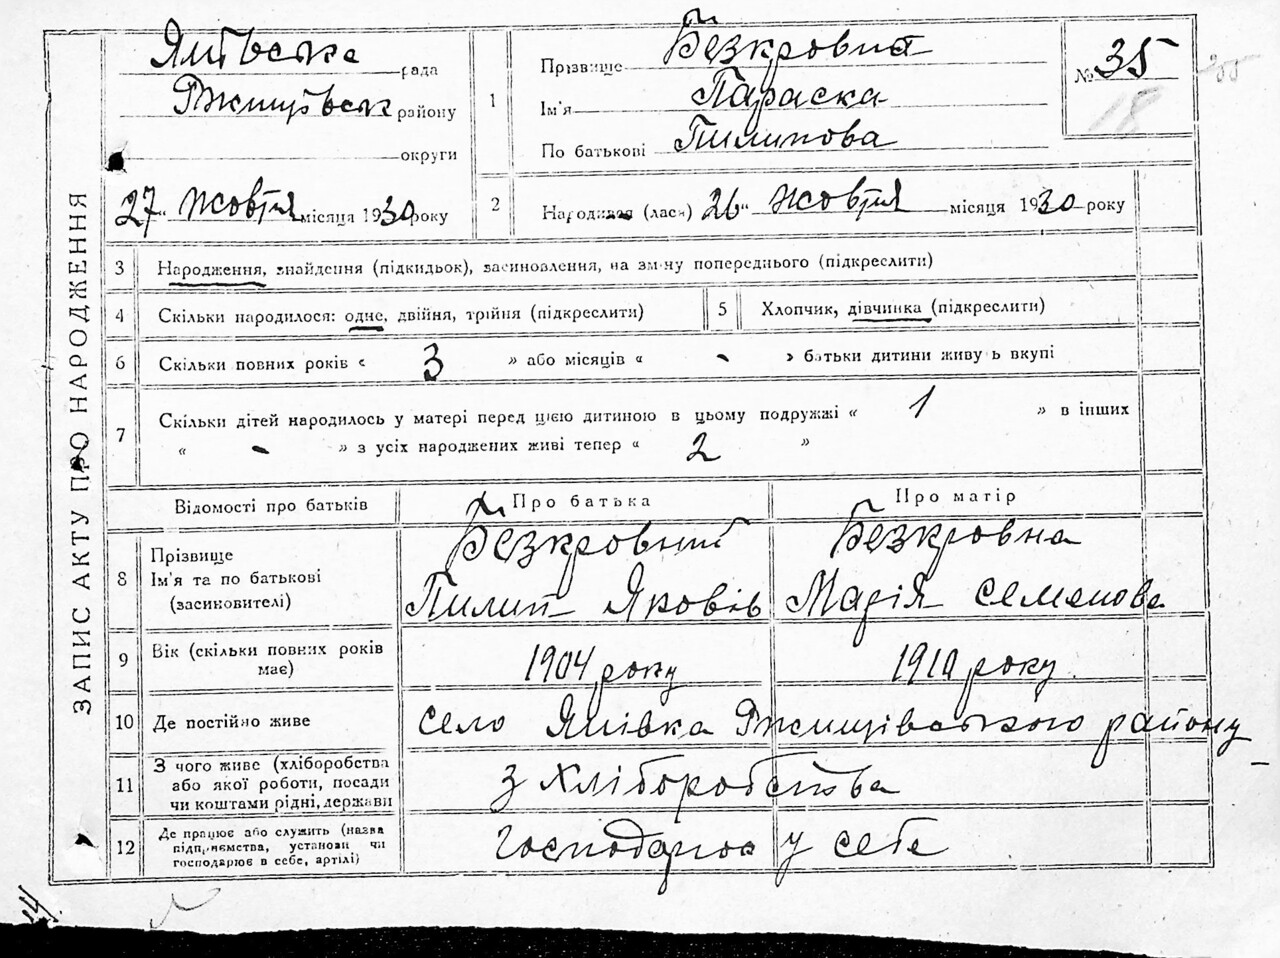 ЗАПИС АКТУ ПРО НАРОДЖЕННЯ
Ямівська рада
Ржищівськ району
округи
27 " жовтня місяця 1930 року
1
Прізвище Безкровна
Ім'я Параска
По батькові Пилипова
№ 35
18
2
Народився (лася) 26 " жовтня місяця 1930 року
3 Народження, знайдення (підкидьок), засиновлення, на зміну попереднього (підкреслити)
4 Скільки народилося: одне, двійня, трійня (підкреслити)
5 Хлопчик, дівчинка (підкреслити)
6 Скільки повних років « 3 » або місяців « - » батьки дитини живуть вкупі
7 Скільки дітей народилось у матері перед цією дитиною в цьому подружжі « 1 » в інших
« - » з усіх народжених живі тепер « 2 »
Відомості про батьків Про батька Про матір
8 Прізвище
Ім'я та по батькові
(засиновителі)
Безкровний
Пилип Яковів
Безкровна
Марія Семенова
9 Вік (скільки повних років
має)
1904 року 1910 року
10 Де постійно живе село Ямівка Ржищівського району
11 З чого живе (хліборобства
або якої роботи, посади
чи коштами рідні, держави
з хліборобства
12 Де працює або служить (назва
підприємства, установи чи
господарює в себе, артілі)
господарює у себе